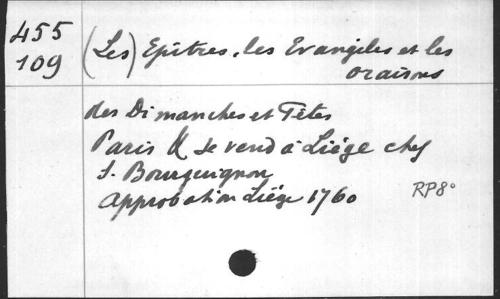 455
109
(Les) Epitres, les Evangiles et les
oraisons
des Dimanches et Fêtes
Paris & se vend à Liége chez
J. Bourguignon
Approbation Liége 1760
RP8°